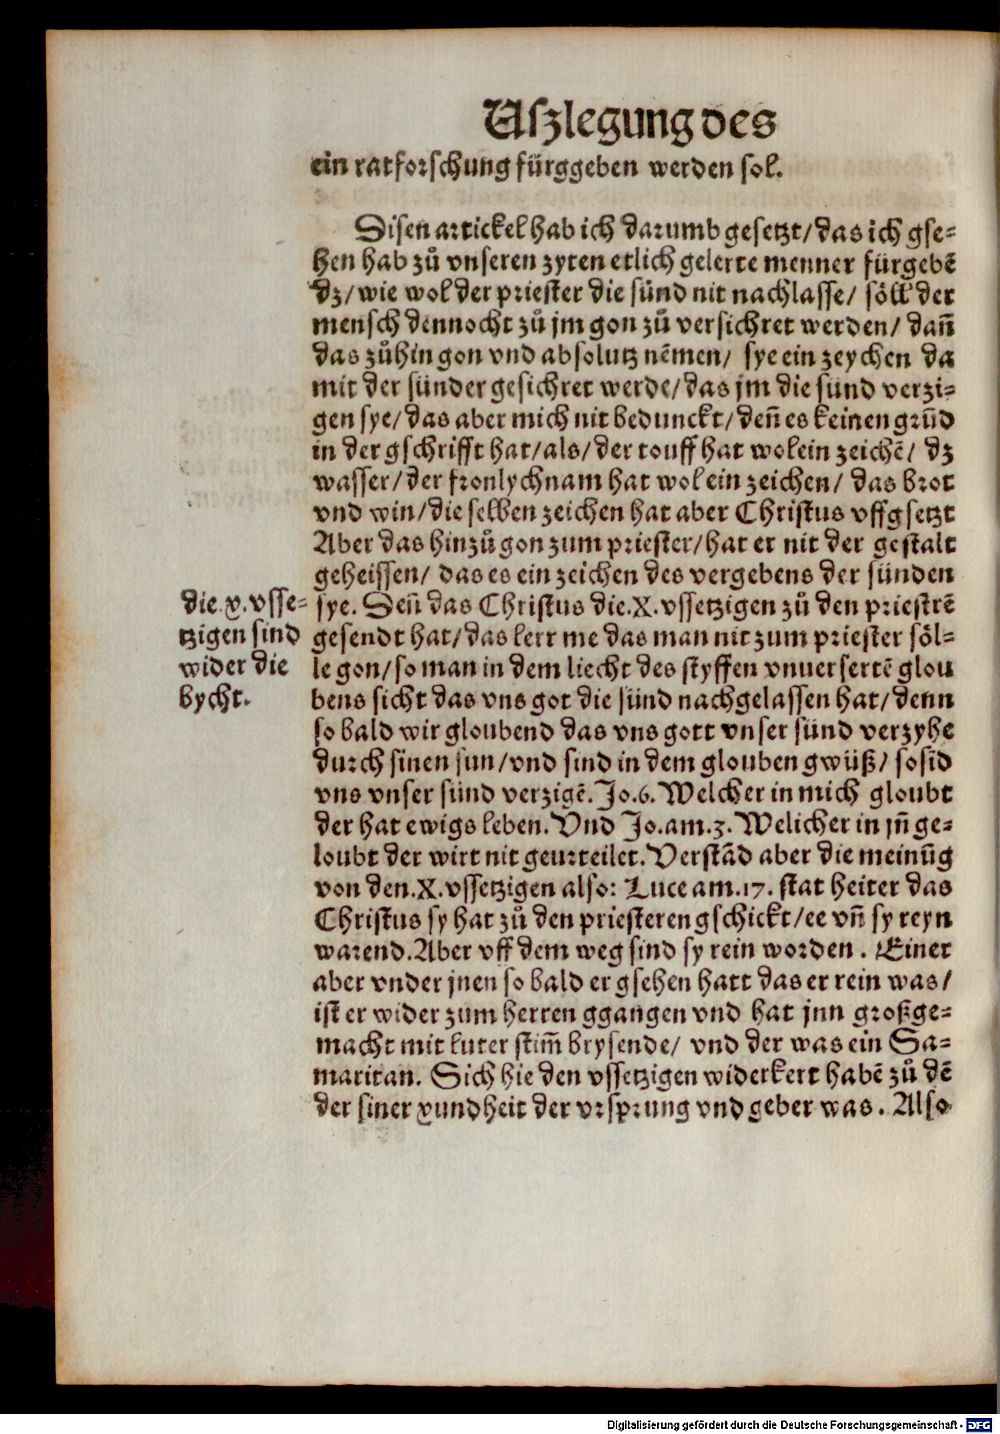 Uſzlegung des
ein ratforſchung fürggeben werden ſol.
Diſen artickel hab ich darumb geſetzt/das ich gſe⸗
hen hab zů vnſeren zyten etlich gelerte menner fürgebē
dz/wie wol der prieſter die ſünd nit nachlaſſe/ ſöll der
menſch dennocht zů jm gon zů verſichret werden/ dañ
das zůhin gon vnd abſolutz nēmen/ ſye ein zeychen da
mit der ſünder geſichret werde/das jm die ſünd verzi⸗
gen ſye/das aber mich nit bedunckt/deñ es keinen grūd
in der gſchrifft hat/als/der touff hat wol ein zeichē/ dz
waſſer/der fronlychnam hat wol ein zeichen/ das brot
vnd win/die ſelben zeichen hat aber Chriſtus vffgſetzt
Aber das hinzů gon zum prieſter/hat er nit der geſtalt
geheiſſen/ das es ein zeichen des vergebens der ſünden
ſye. Deñ das Chriſtus die.X.vſſetzigen zů den prieſtrē
geſendt hat/das lert me das man nit zum prieſter ſöl⸗
le gon/ſo man in dem liecht des ſtyffen vnuerſertē glou
bens ſicht das vns got die ſünd nachgelaſſen hat/denn
ſo bald wir gloubend das vns gott vnſer ſünd verzyhe
durch ſinen ſun/vnd ſind in dem glouben gwüß/ ſo ſid
vns vnſer ſünd verzigē. Jo.6. Welcher in mich gloubt
der hat ewigs leben. Vnd Jo.am.3. Welicher in jñ ge⸗
loubt der wirt nit geurteilet. Verſtād aber die meinūg
von den.X.vſſetzigen alſo: Luce am.17. ſtat heiter das
Chriſtus ſy hat zů den prieſteren gſchickt/ee vñ ſy reyn
warend. Aber vff dem weg ſind ſy rein worden. Einer
aber vnder jnen ſo bald er gſehen hatt das er rein was/
iſt er wider zum herren ggangen vnd hat jnn großge⸗
macht mit luter ſtim̄ bryſende/ vnd der was ein Sa⸗
maritan. Sich hie den vſſetzigen widerkert habē zů dē
der ſiner xundheit der vrſprung vnd geber was. Alſo
die.x.vſſe⸗
tzigen ſind
wider die
bycht.
Digitalisierung gefördert durch die Deutsche Forschungsgemeinschaft - DFG